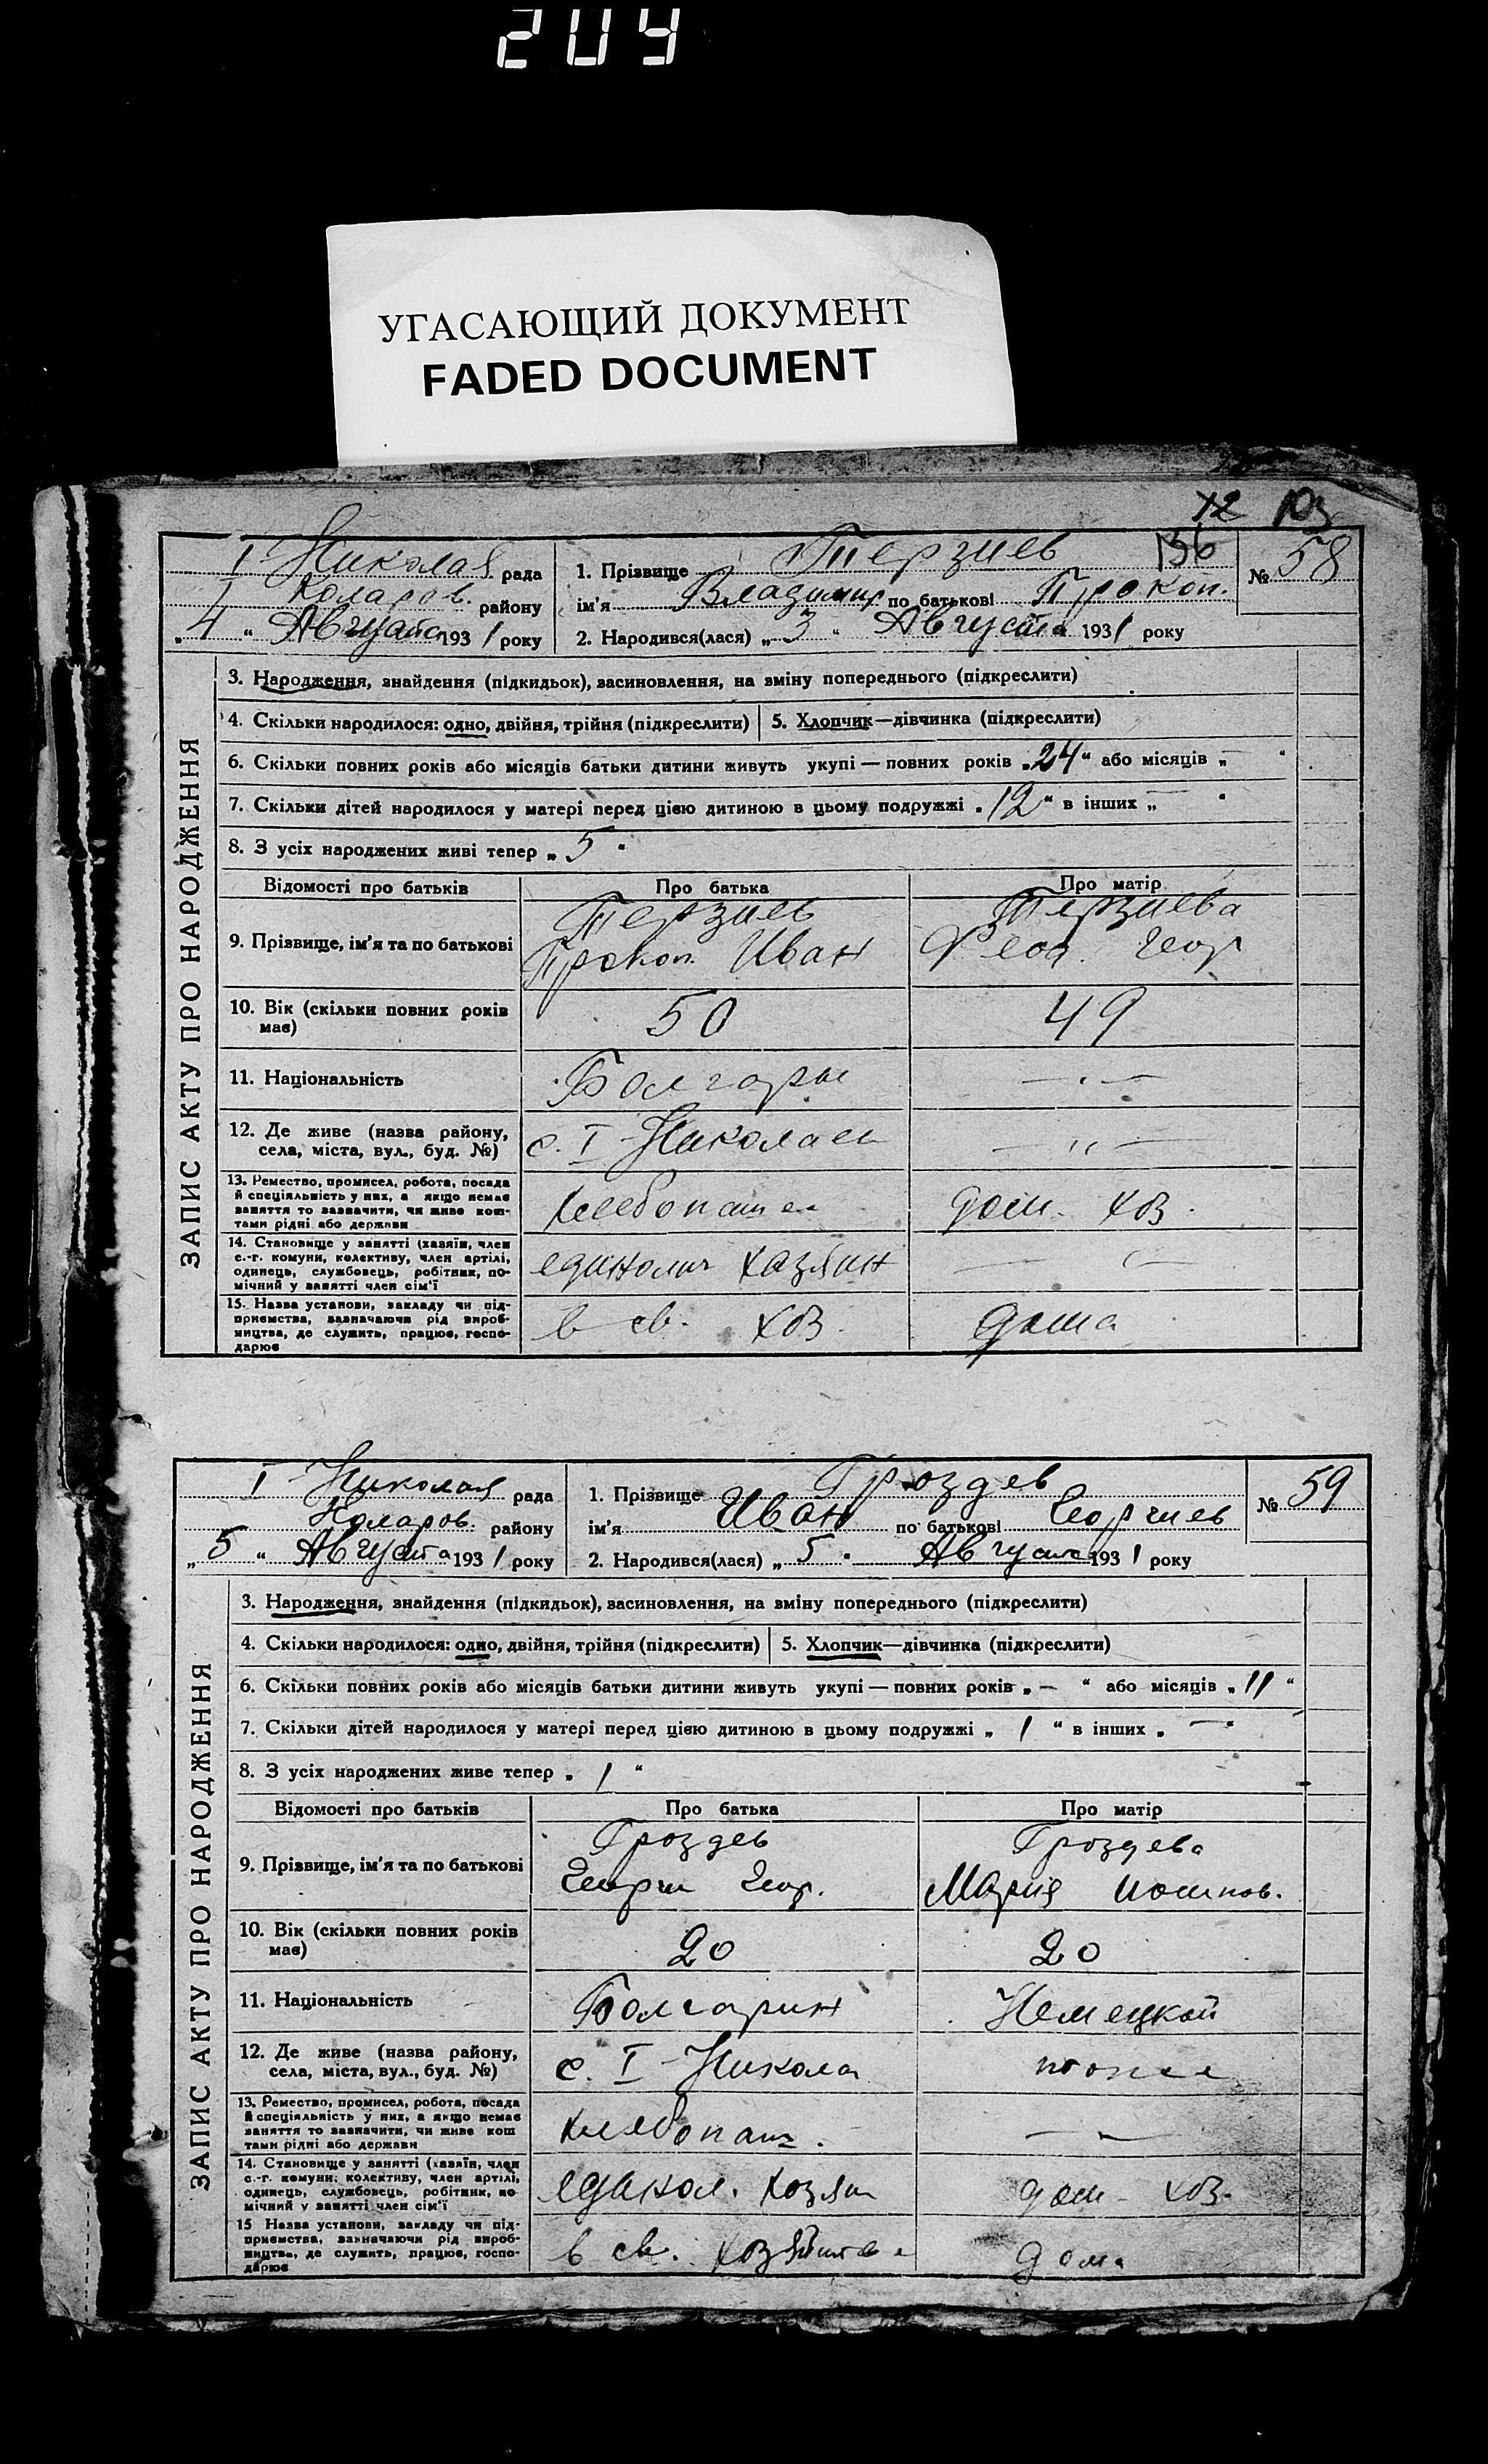 204
УГАСАЮЩИЙ ДОКУМЕНТ
FADED DOCUMENT
72 103
156
I Николая рада
I Коларов. району
„4“ Августа 1931 року
1. Прізвище Терзиев
ім'я Владимир по батькові Прокоп.
2. Народився(лася) „3“ Августа 1931 року
№ 58
ЗАПИС АКТУ ПРО НАРОДЖЕННЯ
3. Народження, знайдення (підкидьок), засиновлення, на зміну попереднього (підкреслити)
4. Скільки народилося: одно, двійня, трійня (підкреслити) 5. Хлопчик—дівчинка (підкреслити)
6. Скільки повних років або місяців батьки дитини живуть укупі — повних років „24“ або місяців „—“
7. Скільки дітей народилося у матері перед цією дитиною в цьому подружжі „12“ в інших „—“
8. З усіх народжених живі тепер „5“
Відомості про батьків Про батька Про матір
9. Прізвище, ім'я та по батькові
Терзиев Терзиева
Прокоп. Иван Феод. Геор
10. Вік (скільки повних років має) 50 49
11. Національність Болгары — " —
12. Де живе (назва району, села, міста, вул., буд. №) с. I-Николаев — " —
13. Ремество, промисел, робота, посада
й спеціяльність у них, а якщо немає
заняття то зазначити, чи живе кош-
тами рідні або держави
хлебопаш дом. хоз.
14. Становище у занятті (хазяїн, член
с.-г. комуни, колективу, член артілі,
одинець, службовець, робітник, по-
мічний у занятті член сім'ї
единолич хазяин — " —
15. Назва установи, закладу чи під-
приємства, зазначаючи рід вироб-
ництва, де служить, працює, госпо-
дарює
в св. хоз. дома
I Николая рада
Коларов. району
„5“ Августа 1931 року
1. Прізвище Гроздев
ім'я Иван по батькові Георгиев
2. Народився(лася) „5“ Августа 1931 року
№ 59
ЗАПИС АКТУ ПРО НАРОДЖЕННЯ
3. Народження, знайдення (підкидьок), засиновлення, на зміну попереднього (підкреслити)
4. Скільки народилося: одно, двійня, трійня (підкреслити) 5. Хлопчик—дівчинка (підкреслити)
6. Скільки повних років або місяців батьки дитини живуть укупі — повних років „—“ або місяців „11“
7. Скільки дітей народилося у матері перед цією дитиною в цьому подружжі „1“ в інших „—“
8. З усіх народжених живе тепер „1“
Відомості про батьків Про батька Про матір
9. Прізвище, ім'я та по батькові
Гроздев Гроздева
Георги Геор. Мария
10. Вік (скільки повних років має) 20 20
11. Національність Болгарин Немецкой
12. Де живе (назва району, села, міста, вул., буд. №) с. I-Никола тоже
13. Ремество, промисел, робота, посада
й спеціяльність у них, а якщо немає
заняття то зазначити, чи живе кош
тами рідні або держави
хлебопаш. — " —
14. Становище у занятті (хазяїн, член
с.-г. комуни, колективу, член артілі,
одинець, службовець, робітник, по
мічний у занятті член сім'ї
единол. хозяин дом хоз.
15 Назва установи, закладу чи під-
приємства, зазначаючи рід вироб-
ництва, де служить, працює, госпо-
дарює
в св. хозяйстве дома